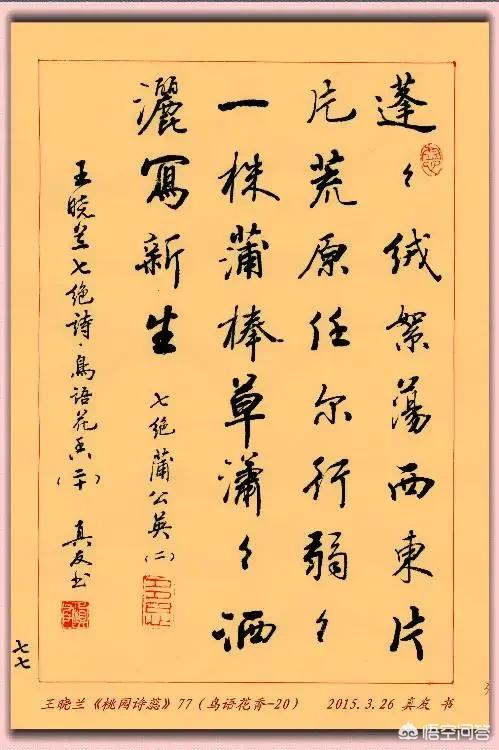 蓬々绒絮蕩西東片
片荒原任尔行弱々
一株蒲棒草瀟々洒
灑寫新生 七绝蒲公英(二)
王晓兰七绝詩·鳥语花香(二十) 真友书
七七
王晓兰《桃园诗蕊》77（鸟语花香-20） 2015.3.26 真友 书
悟空问答